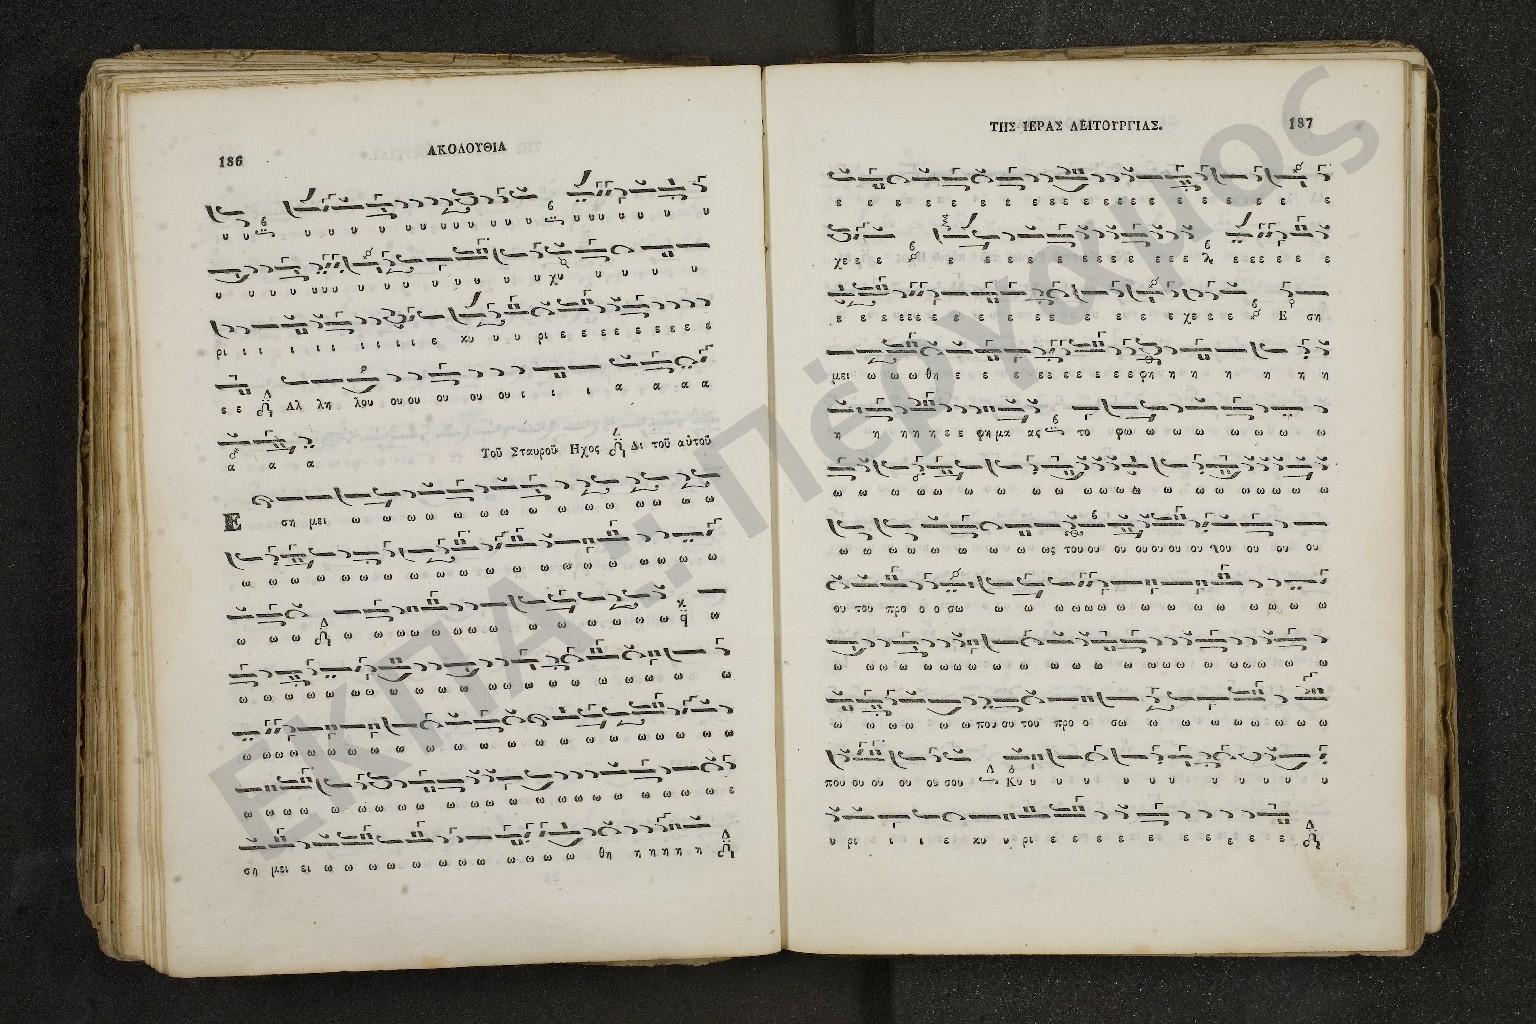 186
ΑΚΟΛΟΥΘΙΑ
υ υ υ υ υ υ υ υ υ υ υ υ υ υ υυυ υ υ υ υ
υ υ υ υ υυυ υ υ υ υ υ υ υ υ χυ υ υ υ υ
ρι ι ι ι ι ι ι ι ι ι ε κυ υ υ ρι ε ε ε ε ε ε ε ε
ε ε Αλ λη λου ου ου ου ου ου ι ι ι α α α α
α α α
Τοῦ Σταυροῦ Ηχος Δι τοῦ αὐτοῦ
Ε ση μει ω ω ω ω ω ω ω ω ω ω ω ω ω ω
ω ω ω ω ω ω ω ω ω ω ω ω ω ω ω ω ω ω ω ω
ω ω ω ω ω ω ω ω ω ω ω ω ω ω ω ω ω ω ω
ω ω ω ω ω ω ω ω ω ω ω ω ω ω ω ω ω ω
ω ω ω ω ω ω ω ω ω ω ω ω ω ω ω ω ω ω ω
ω ω ω ω ω ω ω ω ω ω ω ω ω ω ω ω ω ω ω ε
ση μει ει ω ω ω ω ω ω ω ω ω ω ω ω θη η η η η η
ΤΗΣ ΙΕΡΑΣ ΛΕΙΤΟΥΡΓΙΑΣ.
187
ε ε ε ε ε ε ε ε ε ε ε ε ε ε ε ε ε ε ε ε ε
χε ε ε ε ε ε ε ε ε ε ε ε ε ε λε ε ε ε ε ε
ε ε ε ε ε ε ε ε ε ε ε ε ε ε ε ε χε ε ε Ε ση
μει ω ω ω θη ε ε ε ε ε ε ε ε ε φη η η η η η η
η η η η η ε ε φη μα ας το φω ω ω ω ω ω ω ω ω
ω ω ω ω ω ω ω ω ω ω ω ω ω ω ω ω ω ω ω
ω ω ω ω ω ω ω ω ως του ου ου ου ου ου ου του ου ου ου
ου του προ ο ο σω ω ω ω ω ω ω ω ω ω ω ω ω ω ω
ω ω ω ω ω ω ω ω ω ω ω ω ω ω ω ω ω ω ω ω ω
ω ω ω ω ω ω που ου του προ ο σω ω ω ω ω ω ω ω ω
που ου ου ου ου σου Κυ υ υ υ υ υ υ υ υ υ υ υ
υ ρι ι ι ε κυ υ ρι ε ε ε ε ε ε ε ε ε ε
ΕΚΠΑ: Πέργαμος